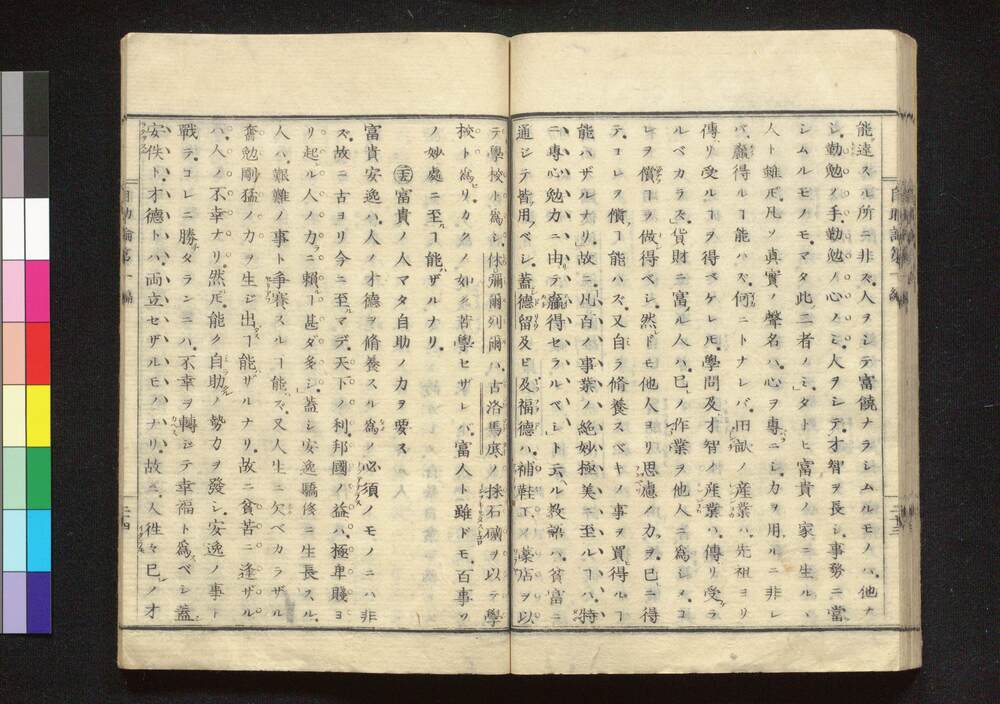 能ク達スル所ニ非ズ人ヲシテ富饒ナラシムルモノハ他ナ
シ勤勉ノ手勤勉ノ心ノミ人ヲシテ才智ヲ長シ事勢ニ當
シムルモノモマタ此二者ノミタトヒ富貴ノ家ニ生ルヽ
人ト雖𪜈凡ソ真實ノ聲名ハ心ヲ專ニシ力ヲ用ルニ非レ
バ贏得ルヿ能ハズ何ニトナレバ田畝ノ産業ハ先祖ヨリ
傳リ受ルヿヲ得ベケレ𪜈學問及ビ才智ノ産業ハ傳リ受ク
ルベカラズ貨財ニ富ル人ハ已ノ作業ヲ他人ニ為シメコ
レヲ償フヿヲ做得ベシ然レドモ他人ヨリ思慮ノ力ヲ已ニ得
テコレヲ償フヿ能ハズ又自ラ脩養スベキノ事ヲ買得ルヿ
能ハザルナリ故ニ凡百ノ事業ノ絶妙極美ニ至ルヿハ特
ニ專心勉力ニ由テ贏得セラルベシト云ル教語ハ貧富ニ
通シテ皆用ベシ蓋德留及ビ及福德ハ補鞋工ノ藥店ヲ以
テ學校ト為シ休彌爾列爾ハ古洛馬底ノ採石礦ヲ以テ學
校ト為リカクノ如ク苦學セザレバ富人ト雖ドモ百事ソ
ノ妙處ニ至ルヿ能ハザルナリ
㉕富貴ノ人マタ自助ノ力ヲ要ス
富貴安逸ハ人ノ才德ヲ脩養スル為ノ必須ノモノニハ非
ズ故ニ古ヨリ今ニ至ルマデ天下ノ利邦國ノ益ハ極卑賤ヨ
リ起ル人ノ力ニ賴ルヿ甚ダ多シ蓋シ安逸驕侈ニ生長スル
人ハ艱難ノ事ト爭賽スルヿ能ハズ又人生ニ欠ベカラザル
奮勉剛猛ノ力ヲ生ジ出スヿ能ハザルナリ故ニ貧苦ニ逢ザル
ハ人ノ不幸ナリ然𪜈能ク自助ノ勢力ヲ發シ安逸ノ事ト
戰テコレニ勝タランニハ不幸ヲ轉シテ幸福ト為ベシ蓋
安佚ト才德トハ兩立セザルモノナリ故ニ人徃々已ノ才
自助論第一編
二十四